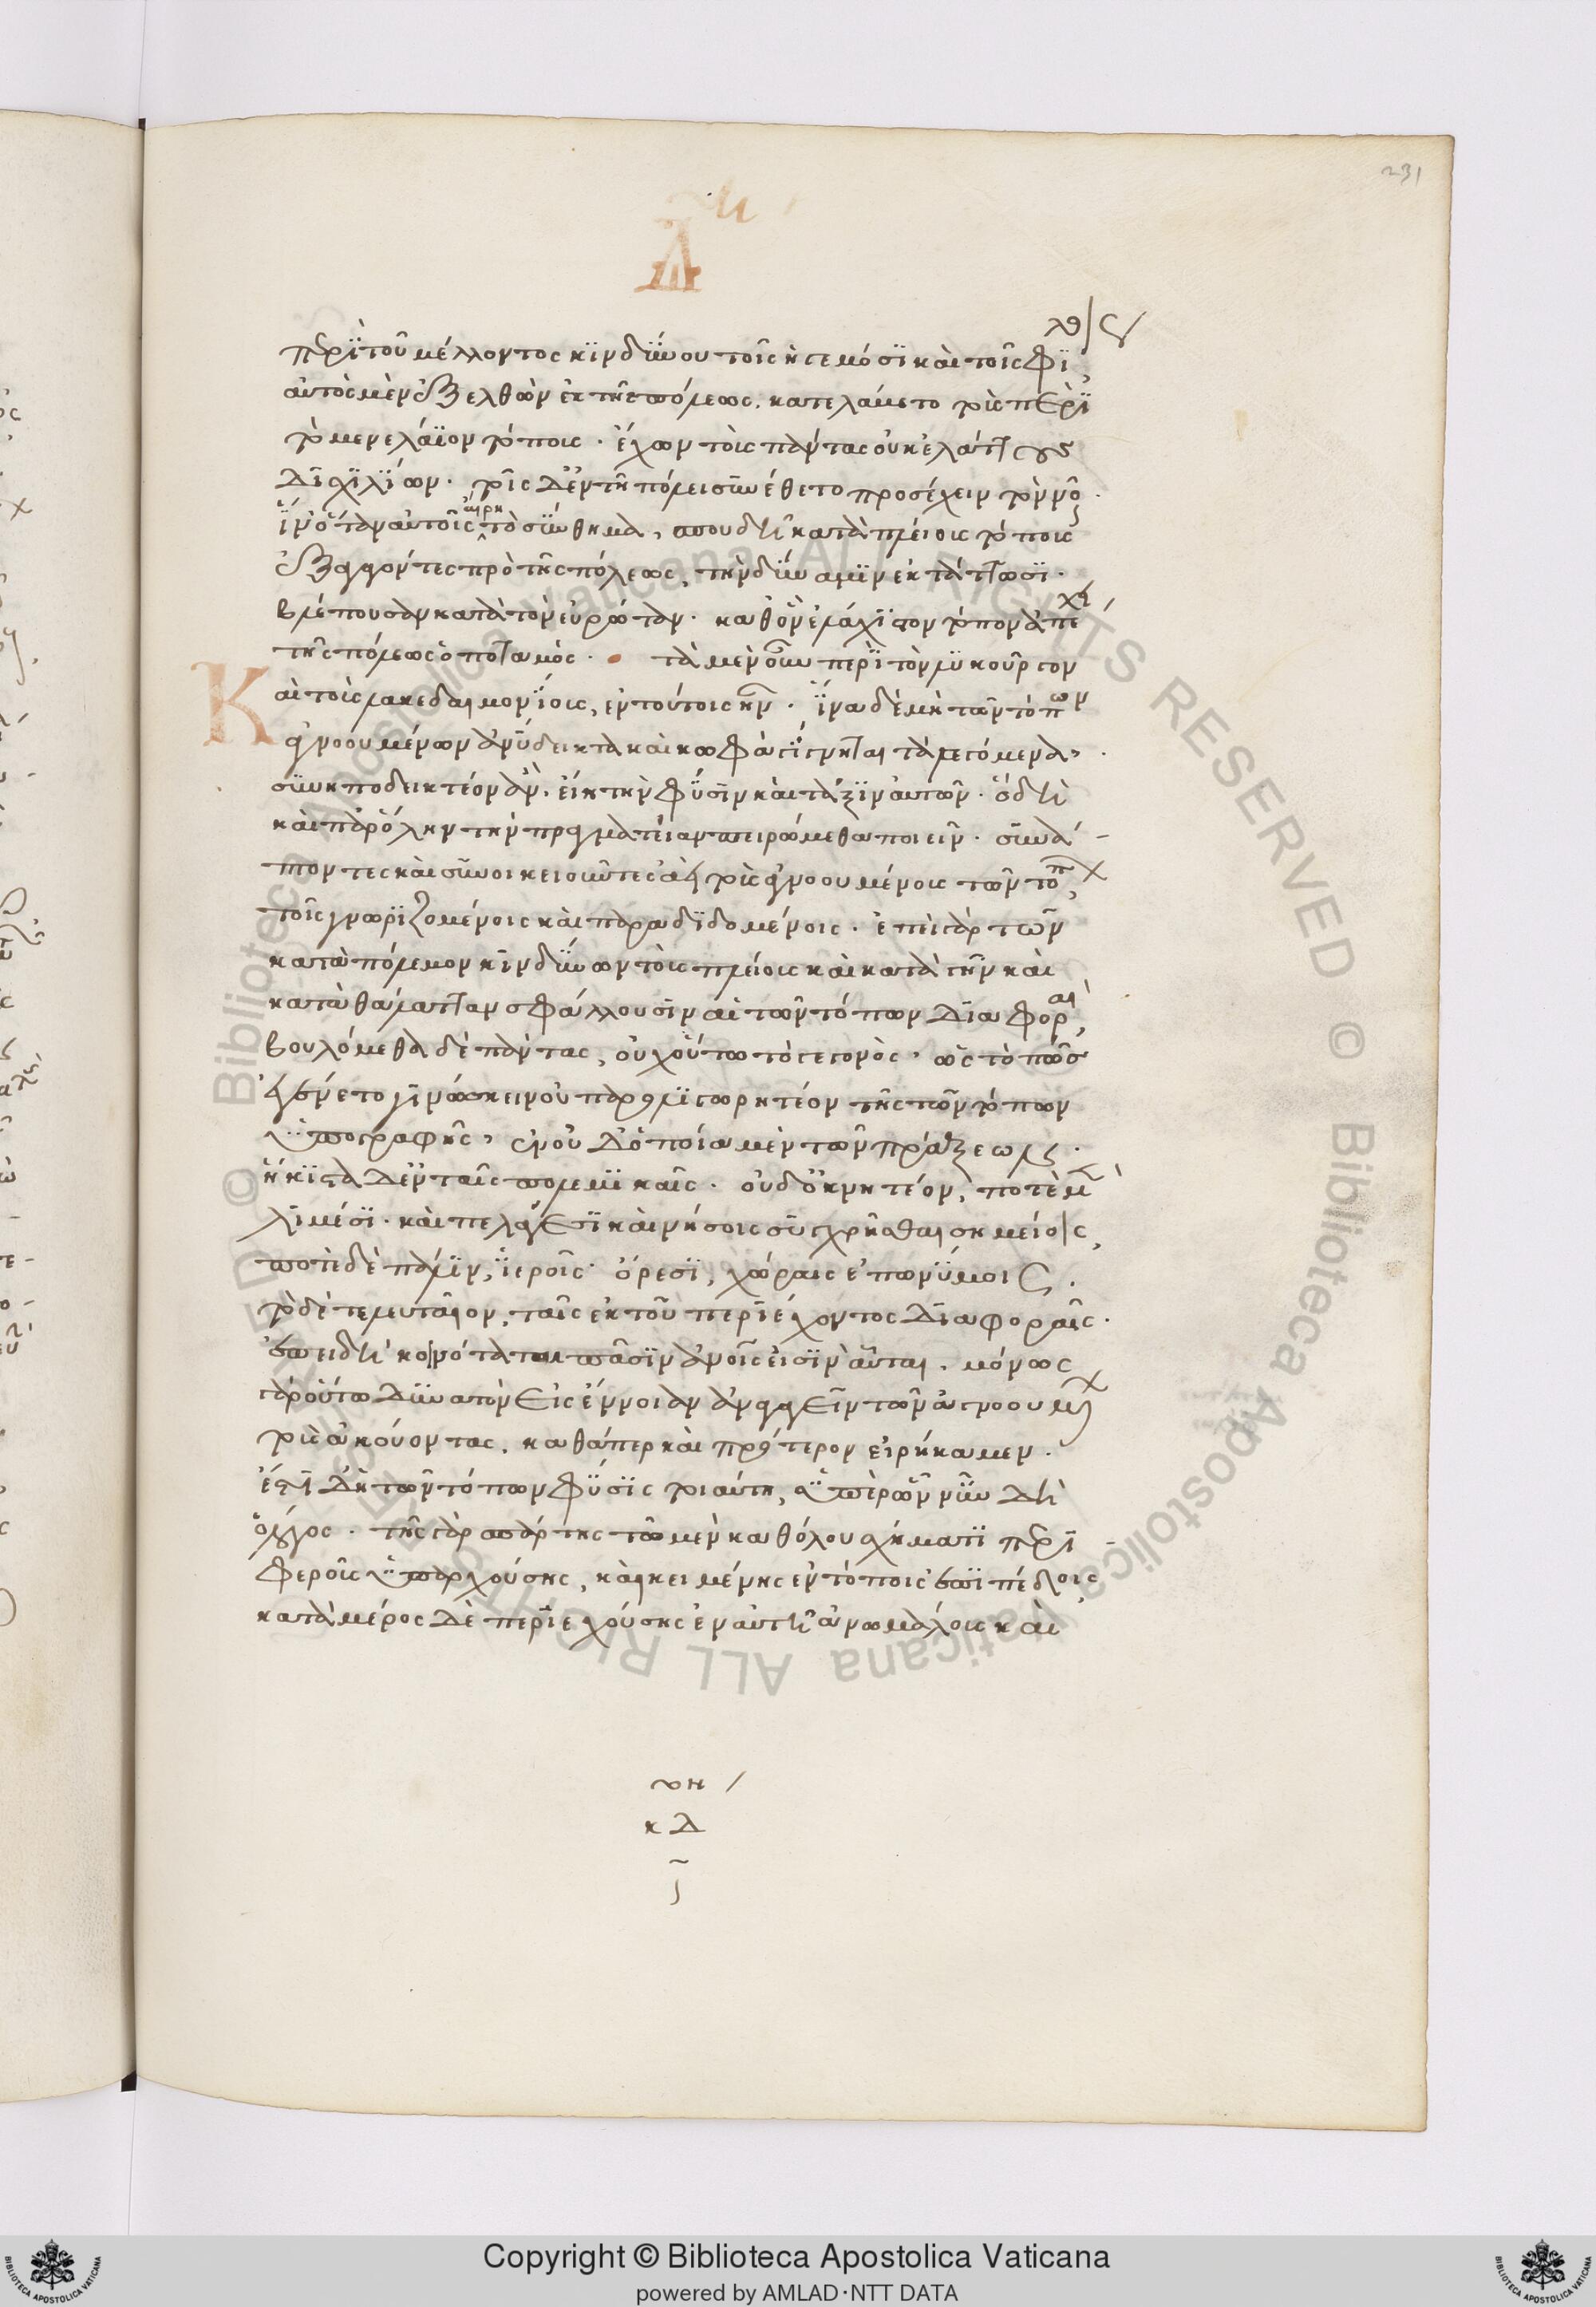 περὶ τοῦ μέλλοντος κινδύνου τοῖς ἡγεμόσι καὶ τοῖς φίλοις,
αὐτὸς μὲν ἐξελθὼν ἐκ τῆς πόλεως, κατελάβετο τοὺς περὶ
τὸ μενελάϊον τόπους· ἔχων τοὺς πάντας οὐκ ἐλάττους
δισχιλίων· τοῖς δ' ἐν τῇ πόλει συνέθετο προσέχειν τὸν νοῦν·
ἵν' ὅταν αὐτοῖς αἴρη τὸ σύνθημα, σπουδῇ κατὰ πλείους τόπους
ἐξαγαγόντες πρὸ τῆς πόλεως, τὴν δύναμιν ἐκτάττωσι·
βλέπουσαν κατὰ τὸν εὐρώταν· καθ' ὃν ἐλάχιστον τόπον ἀπέχει
τῆς πόλεως ὁ ποταμός· τὰ μὲν οὖν περὶ τὸν λυκοῦργον
Καὶ τοὺς λακεδαιμονίους, ἐν τούτοις ἦν· ἵνα δὲ μὴ τῶν τόπων
ἀγνοουμένων ἀνύδεικτα καὶ κωφὰ γίγνηται τὰ λεγόμενα,
συνυποδεικτέον ἂν εἴη τὴν φύσιν καὶ τάξιν αὐτῶν· ὃ δὴ
καὶ παρ' ὅλην τὴν πραγματείαν πειρώμεθα ποιεῖν· συνά-
πτοντες καὶ συνοικειοῦντες ἀεὶ τοὺς ἀγνοουμένους τῶν τόπων,
τοῖς γνωριζομένοις καὶ παραδιδομένοις· ἐπεὶ γὰρ τῶν
κατὰ πόλεμον κινδύνων τοὺς πλείους καὶ κατὰ γῆν καὶ
κατὰ θάλατταν σφάλλουσιν αἱ τῶν τόπων διαφοραὶ,
βουλόμεθα δὲ πάντας, οὐχ οὕτω τὸ γεγονὸς, ὡς τὸ πῶς
ἐγένετο γινώσκειν οὐ παρολιγωρητέον τῆς τῶν τόπων
ὑπογραφῆς, ἐν οὐδ' ὁποίᾳ μὲν τῶν πράξεων·
ἥκιστα δ' ἐν ταῖς πολεμικαῖς· οὐδ' ὀκνητέον, ποτὲ μὲν
λιμέσι· καὶ πελάγεσι καὶ νήσοις συγχρῆσθαι σημείοις,
ποτὲ δὲ πάλιν, ἱεροῖς· ὄρεσι, χώραις ἐπωνύμοις·
τὸ δὲ τελευταῖον, ταῖς ἐκ τοῦ περιέχοντος διαφοραῖς·
ἐπειδὴ κοινόταται πᾶσιν ἀνοῖς εἰσὶν αὗται. μόνως
γὰρ οὕτω δυνατὸν εἰς ἔννοιαν ἀγαγεῖν τῶν ἀγνοουμένων
τοὺς ἀκούοντας, καθάπερ καὶ πρότερον εἰρήκαμεν.
ἔστι δ' ἡ τῶν τόπων φύσις τοιαύτη, ὑπὲρ ὧν νῦν δὴ
ὁ λόγος· τῆς γὰρ σπάρτης τῶ μὲν καθόλου σχήματι περι-
φεροῦς ὑπαρχούσης, καὶ κειμένης ἐν τόποις ἐπιπέδοις,
κατὰ μέρος δὲ περιεχούσης ἐν αὑτῇ ἀνωμάλους καὶ
κδ
231